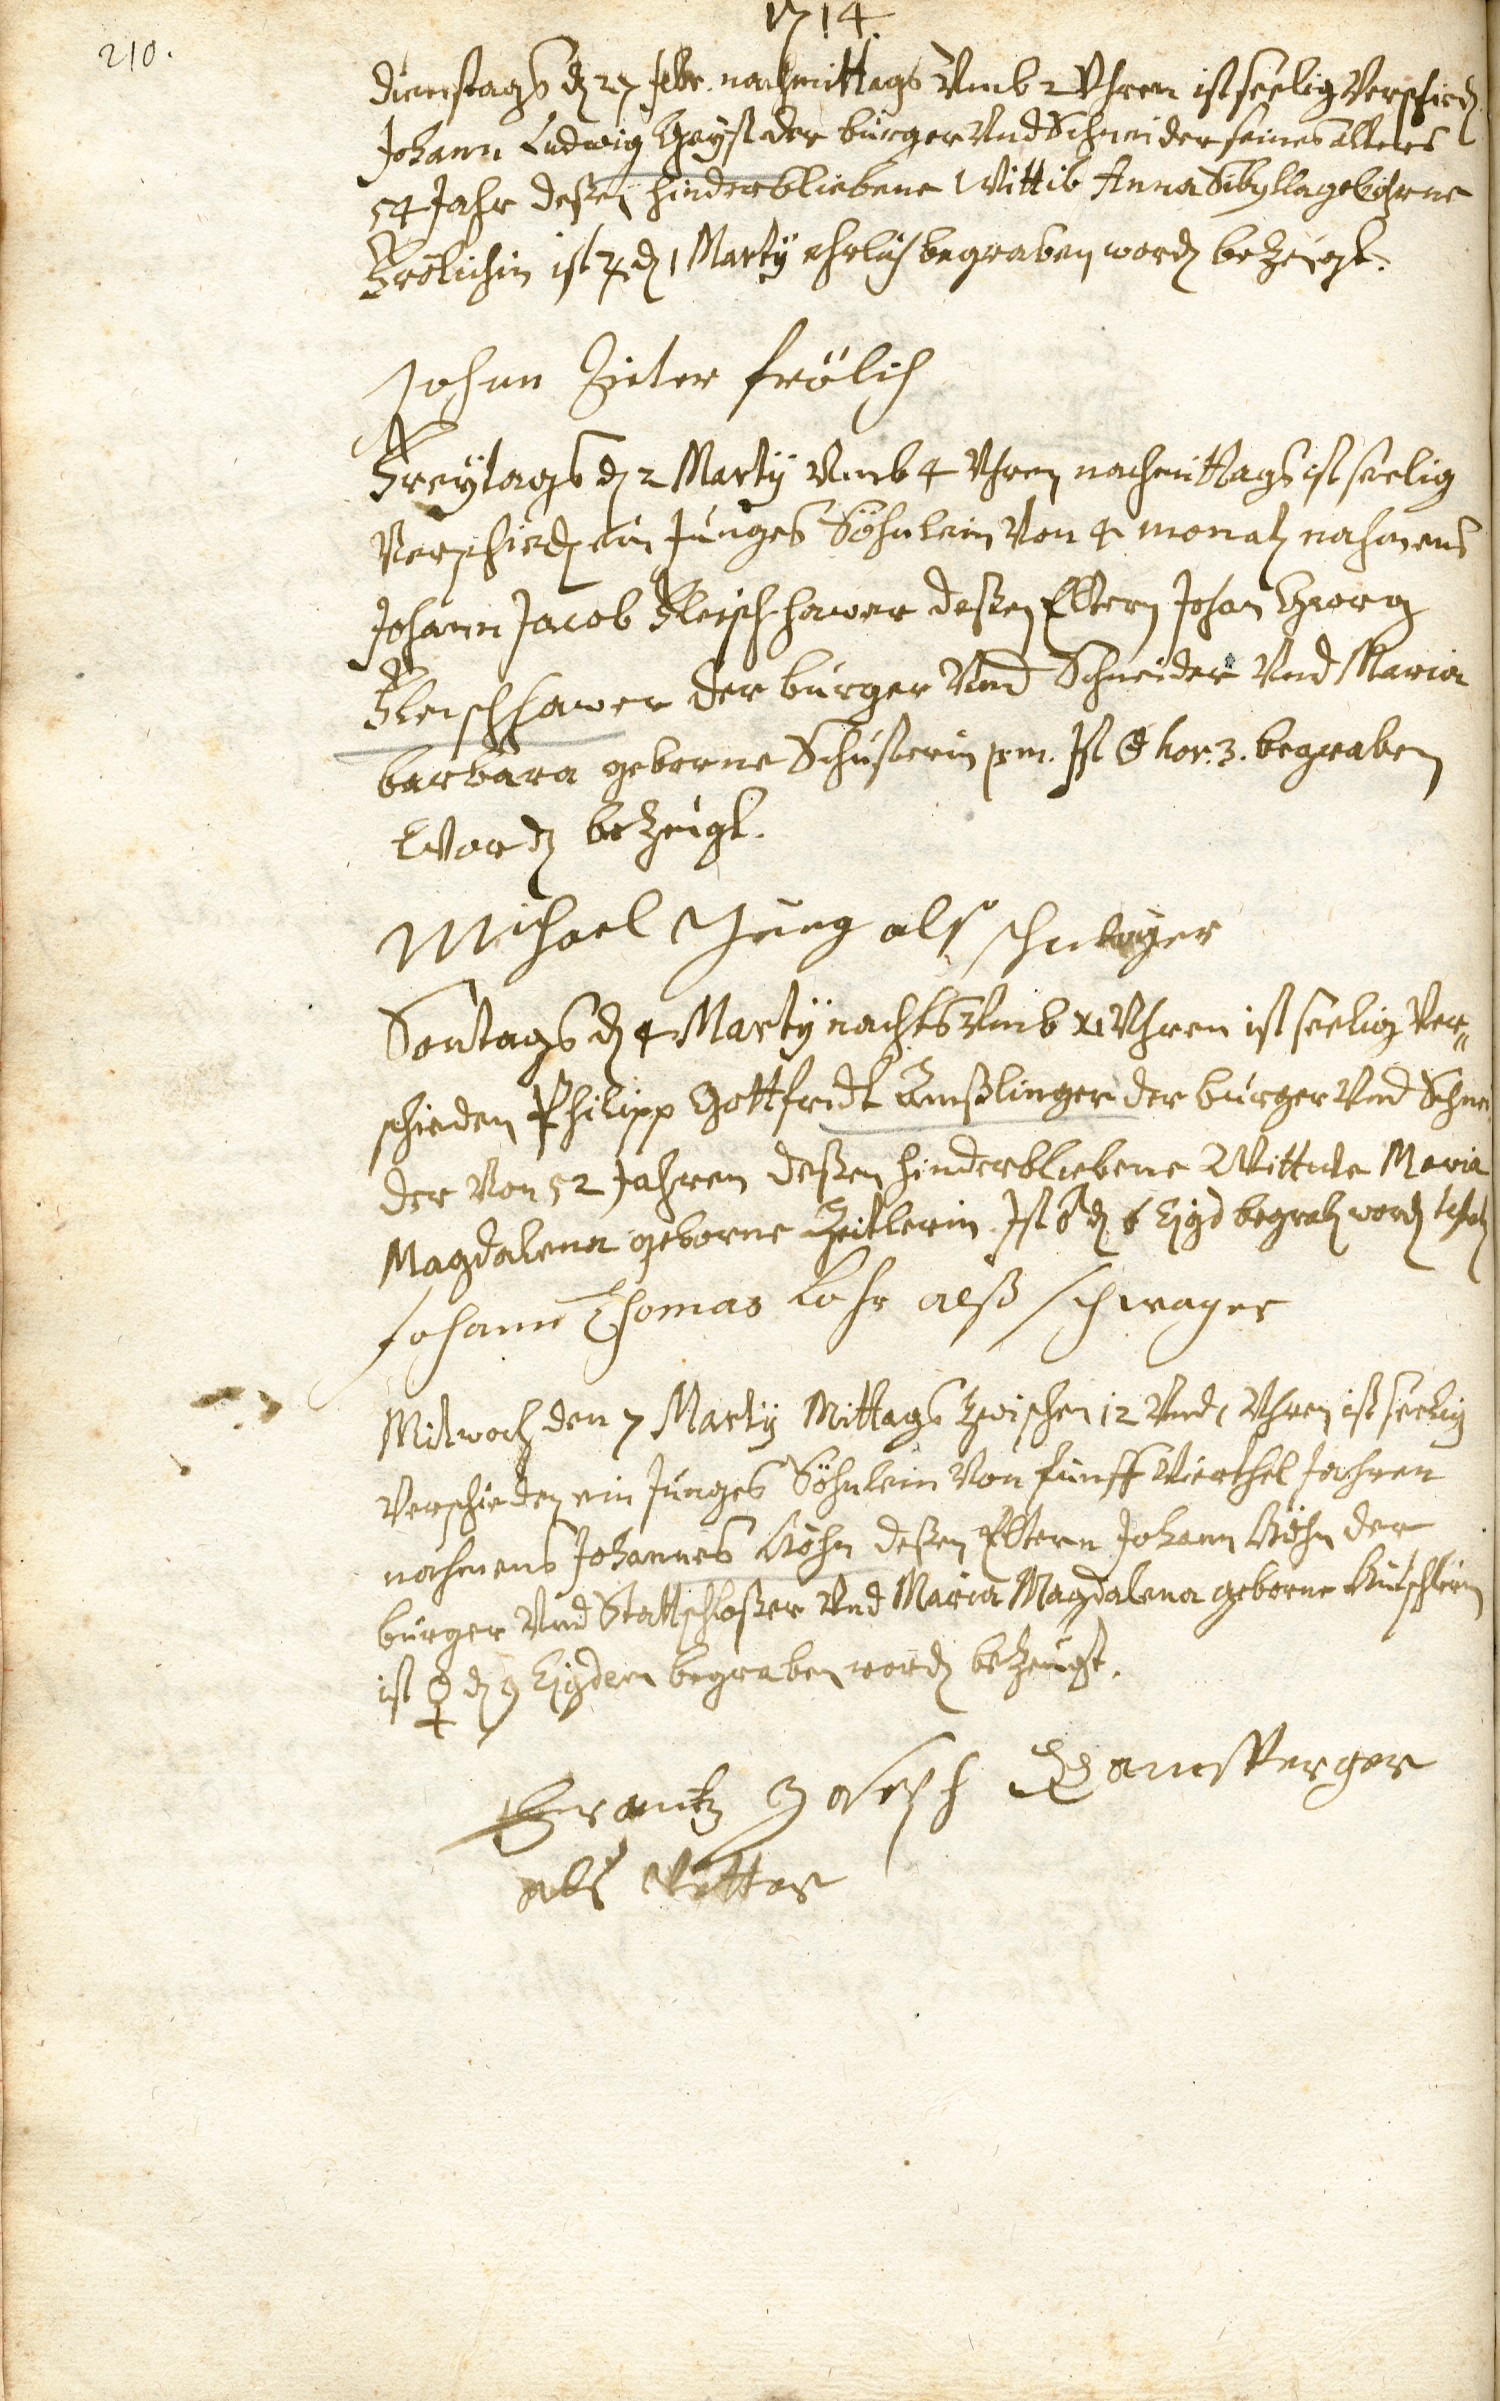 1714.
210.
Dienstags d. 27 febr. nachmittags Vmb 2 Vhren ist seelig Verschied.
Johann Ludwig Geyst der burger Vnd Schneider seines alters
54 Jahr deßen hinderbliebene Wittib Anna Sibylla gebohrne
Frölichin ist ♃ d. 1 Martÿ ehrlich begraben word. bezeugt.
Johan frölich
Freÿtags d. 2 Martÿ Vmb 4 Vhren nachmittags ist seelig
Verschieden ein Junges Söhnlein Von 4 monat nahmens
Johann Jacob Fleischhawer deßen Eltern Johan Georg
Fleischhawer der burger Vnd Schneider Vnd Maria
barbara geborne Schusterin Ist hor. 3. begraben
Word. bezeugt.
Michael Jung alß schwager
Sontags d. 4 Martÿ nachts Vmb XI Vhren ist seelig Ver=
schieden Philipp Gottfridt der burger Vnd Schnei
der Von 52 Jahren deßen hinderbliebene Wittwe Maria
Magdalena geborne Zeitlerin Ist ♂ d. 6 Ejusd begrab. word.
Johann Thomas Lohr alß schwager
Mitwoch den 7 Martÿ Mittags zwischen 12 Vnd 1 Vhren ist seelig
Verschieden ein Junges Söhnlein Von fünff Vierthel Jahren
nahmens Johannes Köhn deßen Eltern Johann Köhn der
burger Vnd Stattschloßer Vnd Maria Magdalena geborne
ist ♀ d. 9 Ejusdem begraben word. bezeugt.
Frantz Joseph
als Vetter